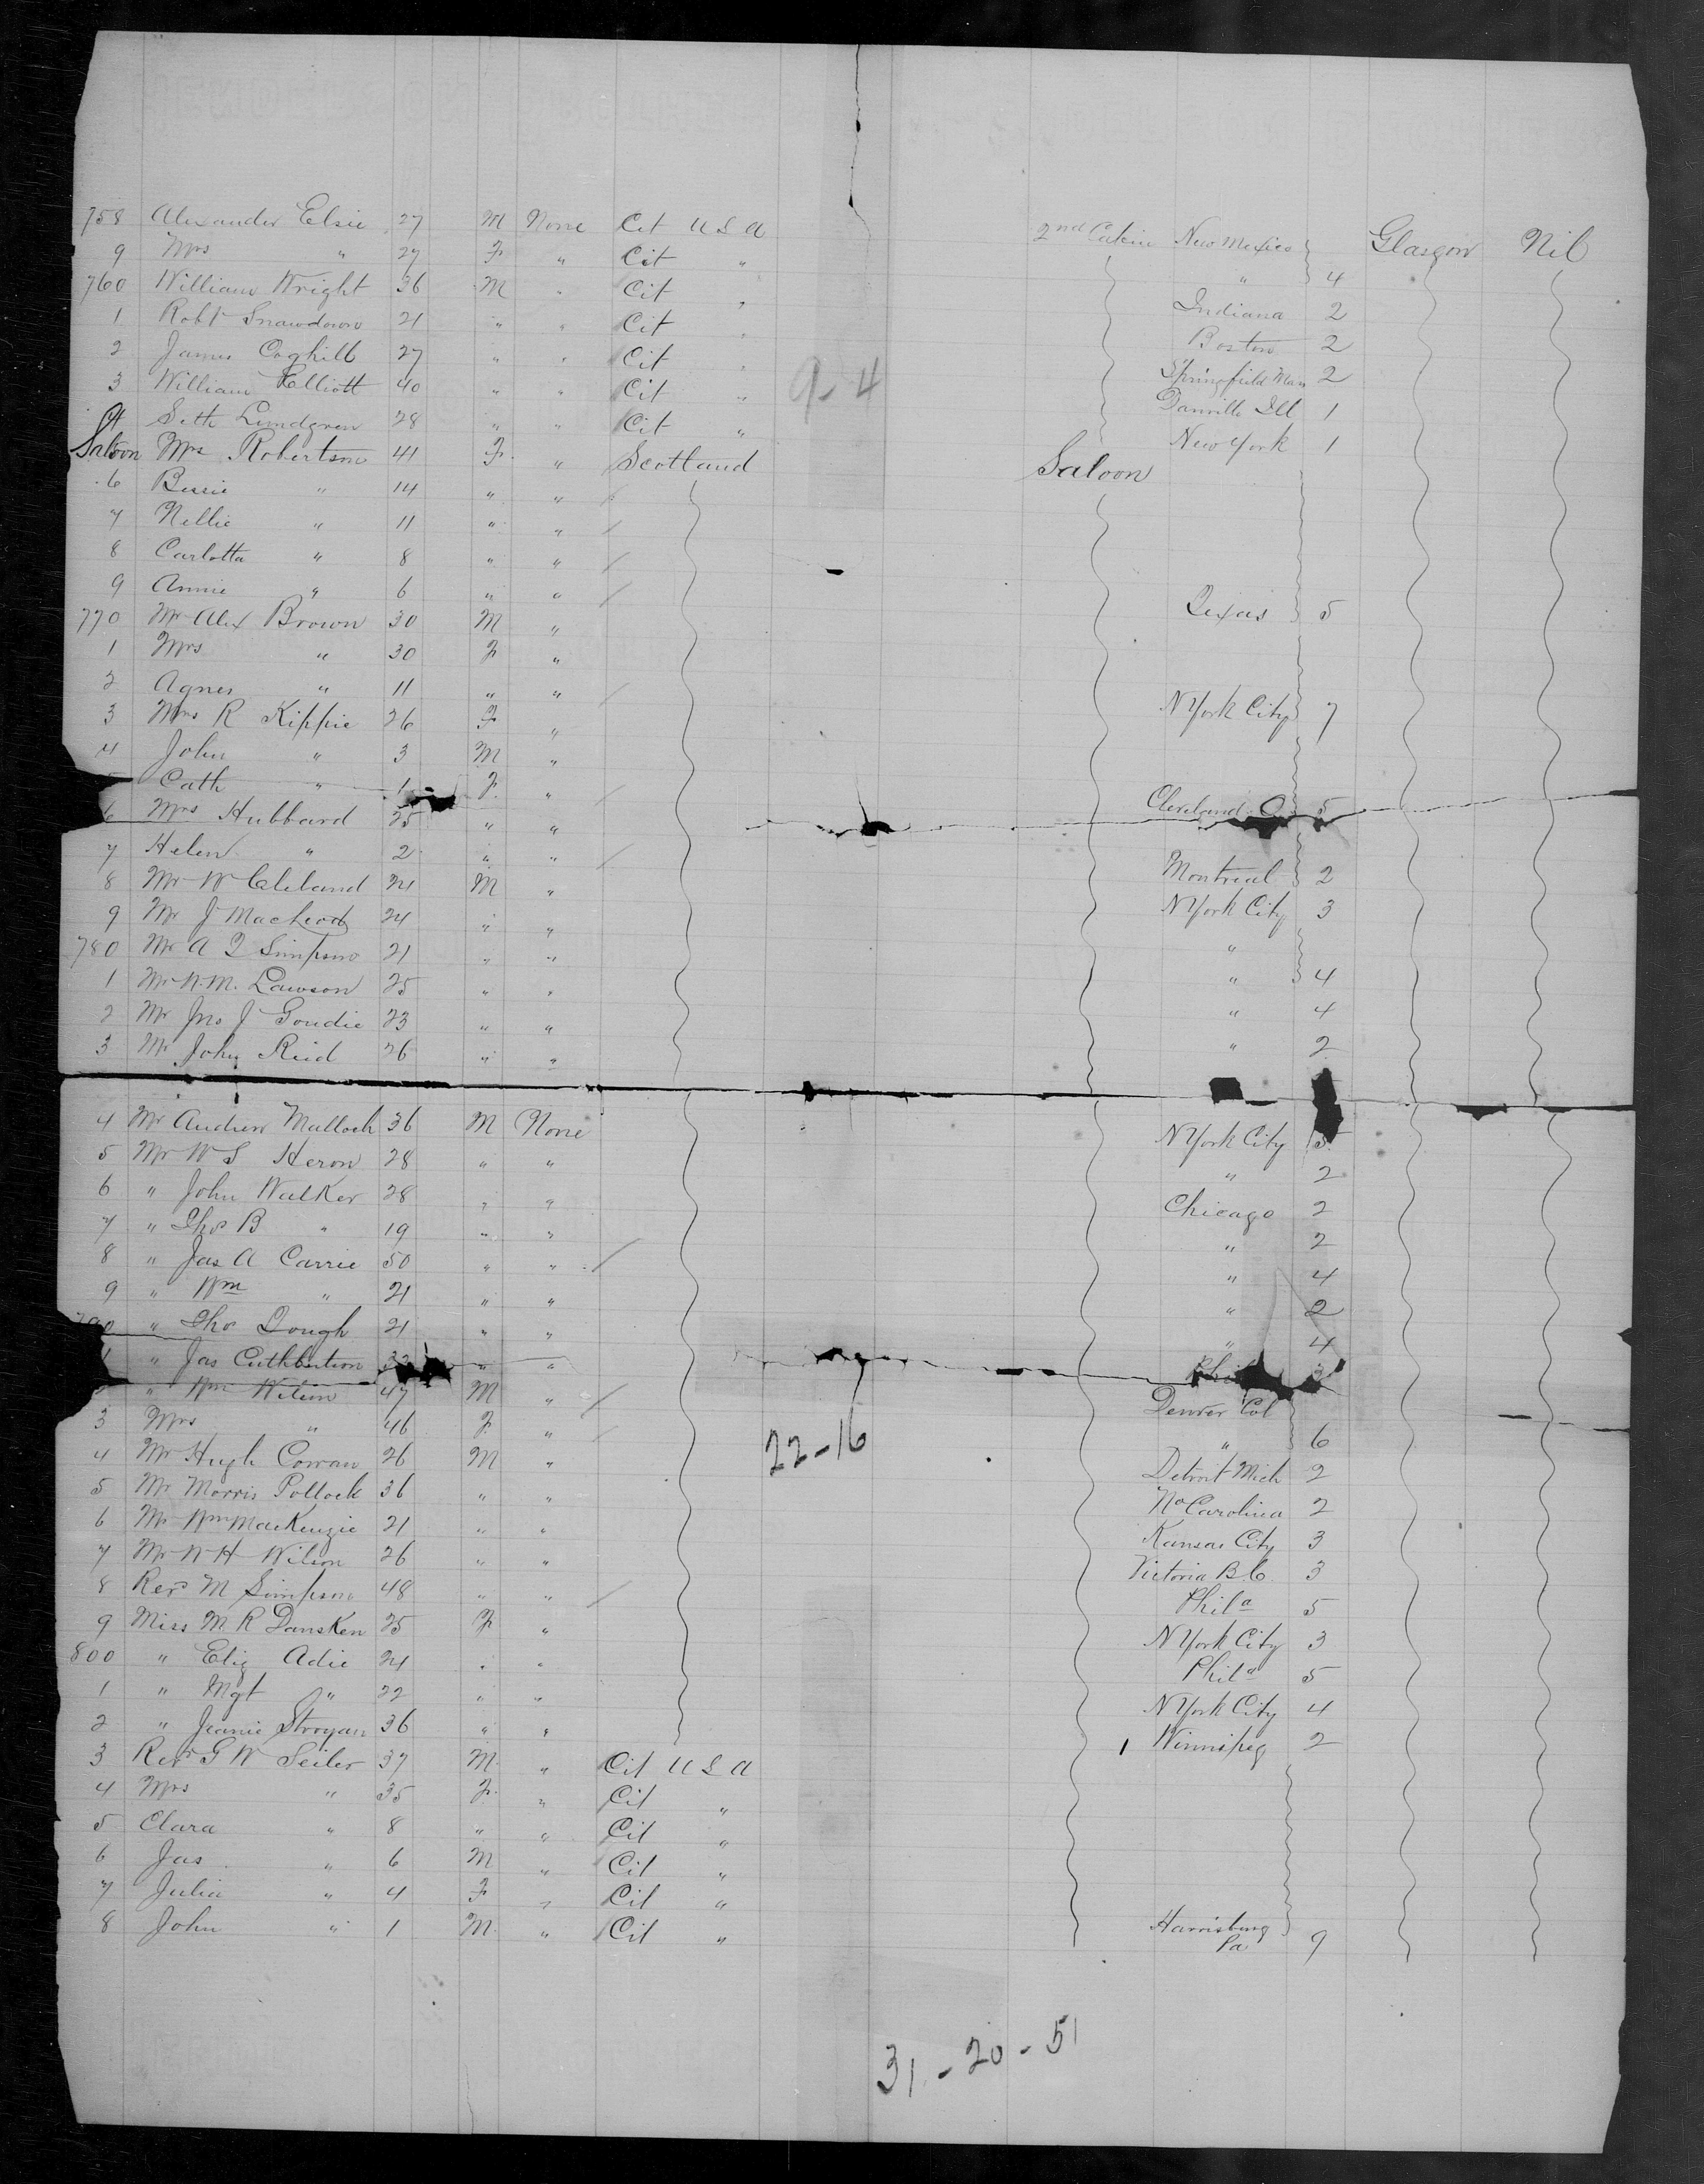 758 Alexander Elsie 27 M None Cit U S A 2nd Cabin New Mexico Glasgow Nil
9 Mrs " 27 F " Cit " " 4
760 William Wright 36 M " Cit " Indiana 2
1 Robt Snawdown 21 " " Cit " Boston 2
2 James Coghill 27 " " Cit " Springfield Mass 2
3 William Elliott 40 " " Cit " Danville Ill 1
4 Seth Lundgren 28 " " Cit " New York 1
9-4
Saloon Mrs Robertson 41 F " Scotland Saloon
6 Bessie " 14 " "
7 Nellie " 11 " "
8 Carlotta " 8 " "
9 Annie " 6 " " Texas 5
770 Mr Alex Brown 30 M "
1 Mrs " 30 F "
2 Agnes " 11 " "
3 Mrs R Kippie 26 F " N York City 7
4 John " 3 M "
Cath " 1 F "
6 Mrs Hubbard 25 " " Cleveland O 5
7 Helen " 2 " "
8 Mr W Cleland 24 M " Montreal 2
9 Mr J MacLeod 24 " " N York City 3
780 Mr A Simpson 21 " " "
1 Mr N. M. Lawson 25 " " " 4
2 Mr Jno J Goudie 23 " " " 4
3 Mr John Reid 26 " " " 2
4 Mr Andrew Malloch 36 M None N York City 5
5 Mr W S Heron 28 " " " 2
6 " John Walker 28 " " Chicago 2
7 " Thos B " 19 " " " 2
8 " Jas A Carrie 50 " " " 4
9 " Wm " 21 " " " 2
790 " Thos Dough 21 " " " 4
" Jas Cuthbertson " "
" Wm Wilson 47 M " Denver Col
3 Mrs " 46 F " " 6
22-16
4 Mr Hugh Cowan 26 M " Detroit Mich 2
5 Mr Morris Pollock 36 " " No Carolina 2
6 Mr Wm MacKenzie 21 " " Kansas City 3
7 Mr W H Wilson 26 " " Victoria B.C. 3
8 Revd M Simpson 48 " " Phila 5
9 Miss M R Dansken 25 F " N York City 3
800 " Eliz Adie 24 " " Phila 5
1 " Mgt " 22 " " N York City 4
2 " Jeanie Stroyan 36 " " 1 Winnipeg 2
3 Revd G W Seiler 37 M " Cit U S A
4 Mrs " 35 F " Cit "
5 Clara " 8 " " Cit "
6 Jas " 6 M " Cit "
7 Julia " 4 F " Cit "
8 John " 1 M " Cit " Harrisburg
Pa 9
31-20-51